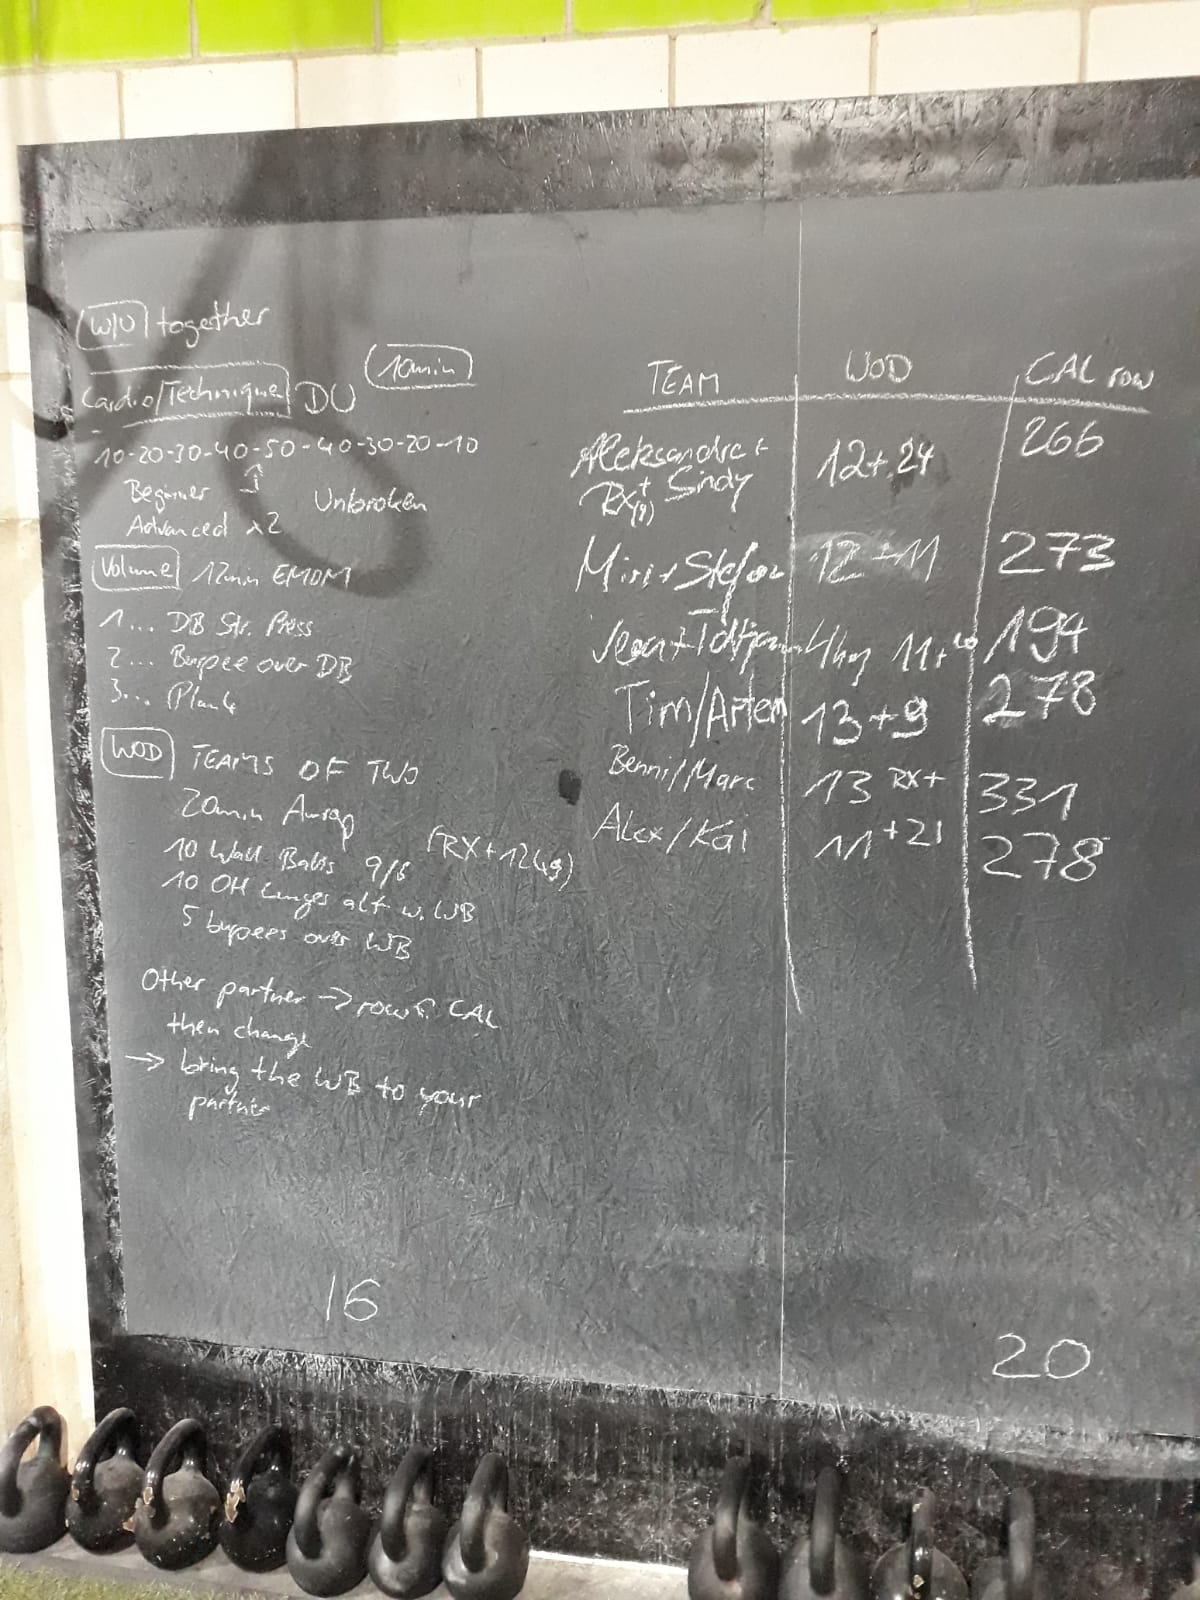 W/U together
Cardio/Technique DU 10min
10-20-30-40-50-40-30-20-10
Beginner Unbroken
Advanced x2
Volume 12min EMOM
1... DB Str. Press
2... Burpee over DB
3... Plank
WOD TEAMS OF TWO
20min Amrap
10 Wall Balls 9/6 (RX+12kg)
10 OH Lunges alt w. WB
5 burpees over WB
Other partner → row CAL
then change
→ bring the WB to your
partner
16
TEAM WOD CAL row
Aleksandra + 12+24 266
RX+ (9) Sindy
Miri + Stefan 12+11 273
4kg 11+ 194
Tim/Artem 13+9 278
Benni/Marc 13 RX+ 331
Alex/Kai 11+21 278
20